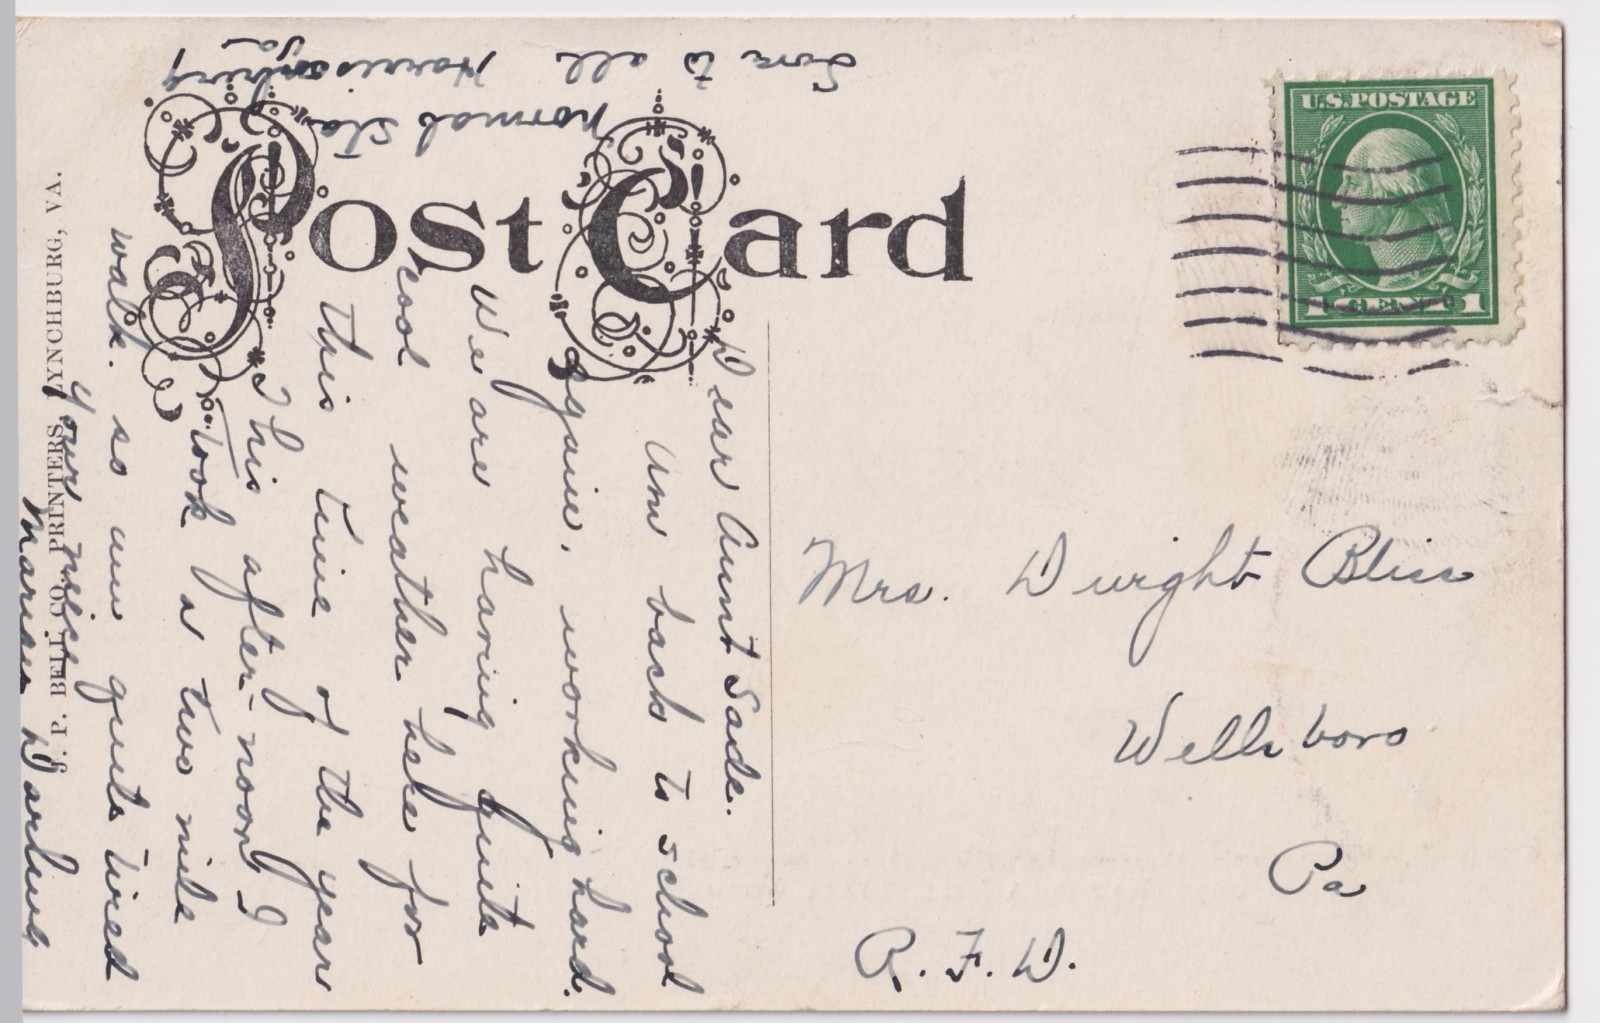 Post Card
U.S. POSTAGE
1 CENT 1
Dear Aunt Sade.
Am back to school
again, working hard.
We are having quite
cool weather here for
this time of the year
This after-noon I
took a two mile
walk. so am quite tired
Your niece
Marian Darling
Love to all
Harrisonburg
Va
normal Sta
Mrs. Dwight Bliss
Wellsboro
Pa
R.F.D.
J. P. BELL CO. PRINTERS, LYNCHBURG, VA.